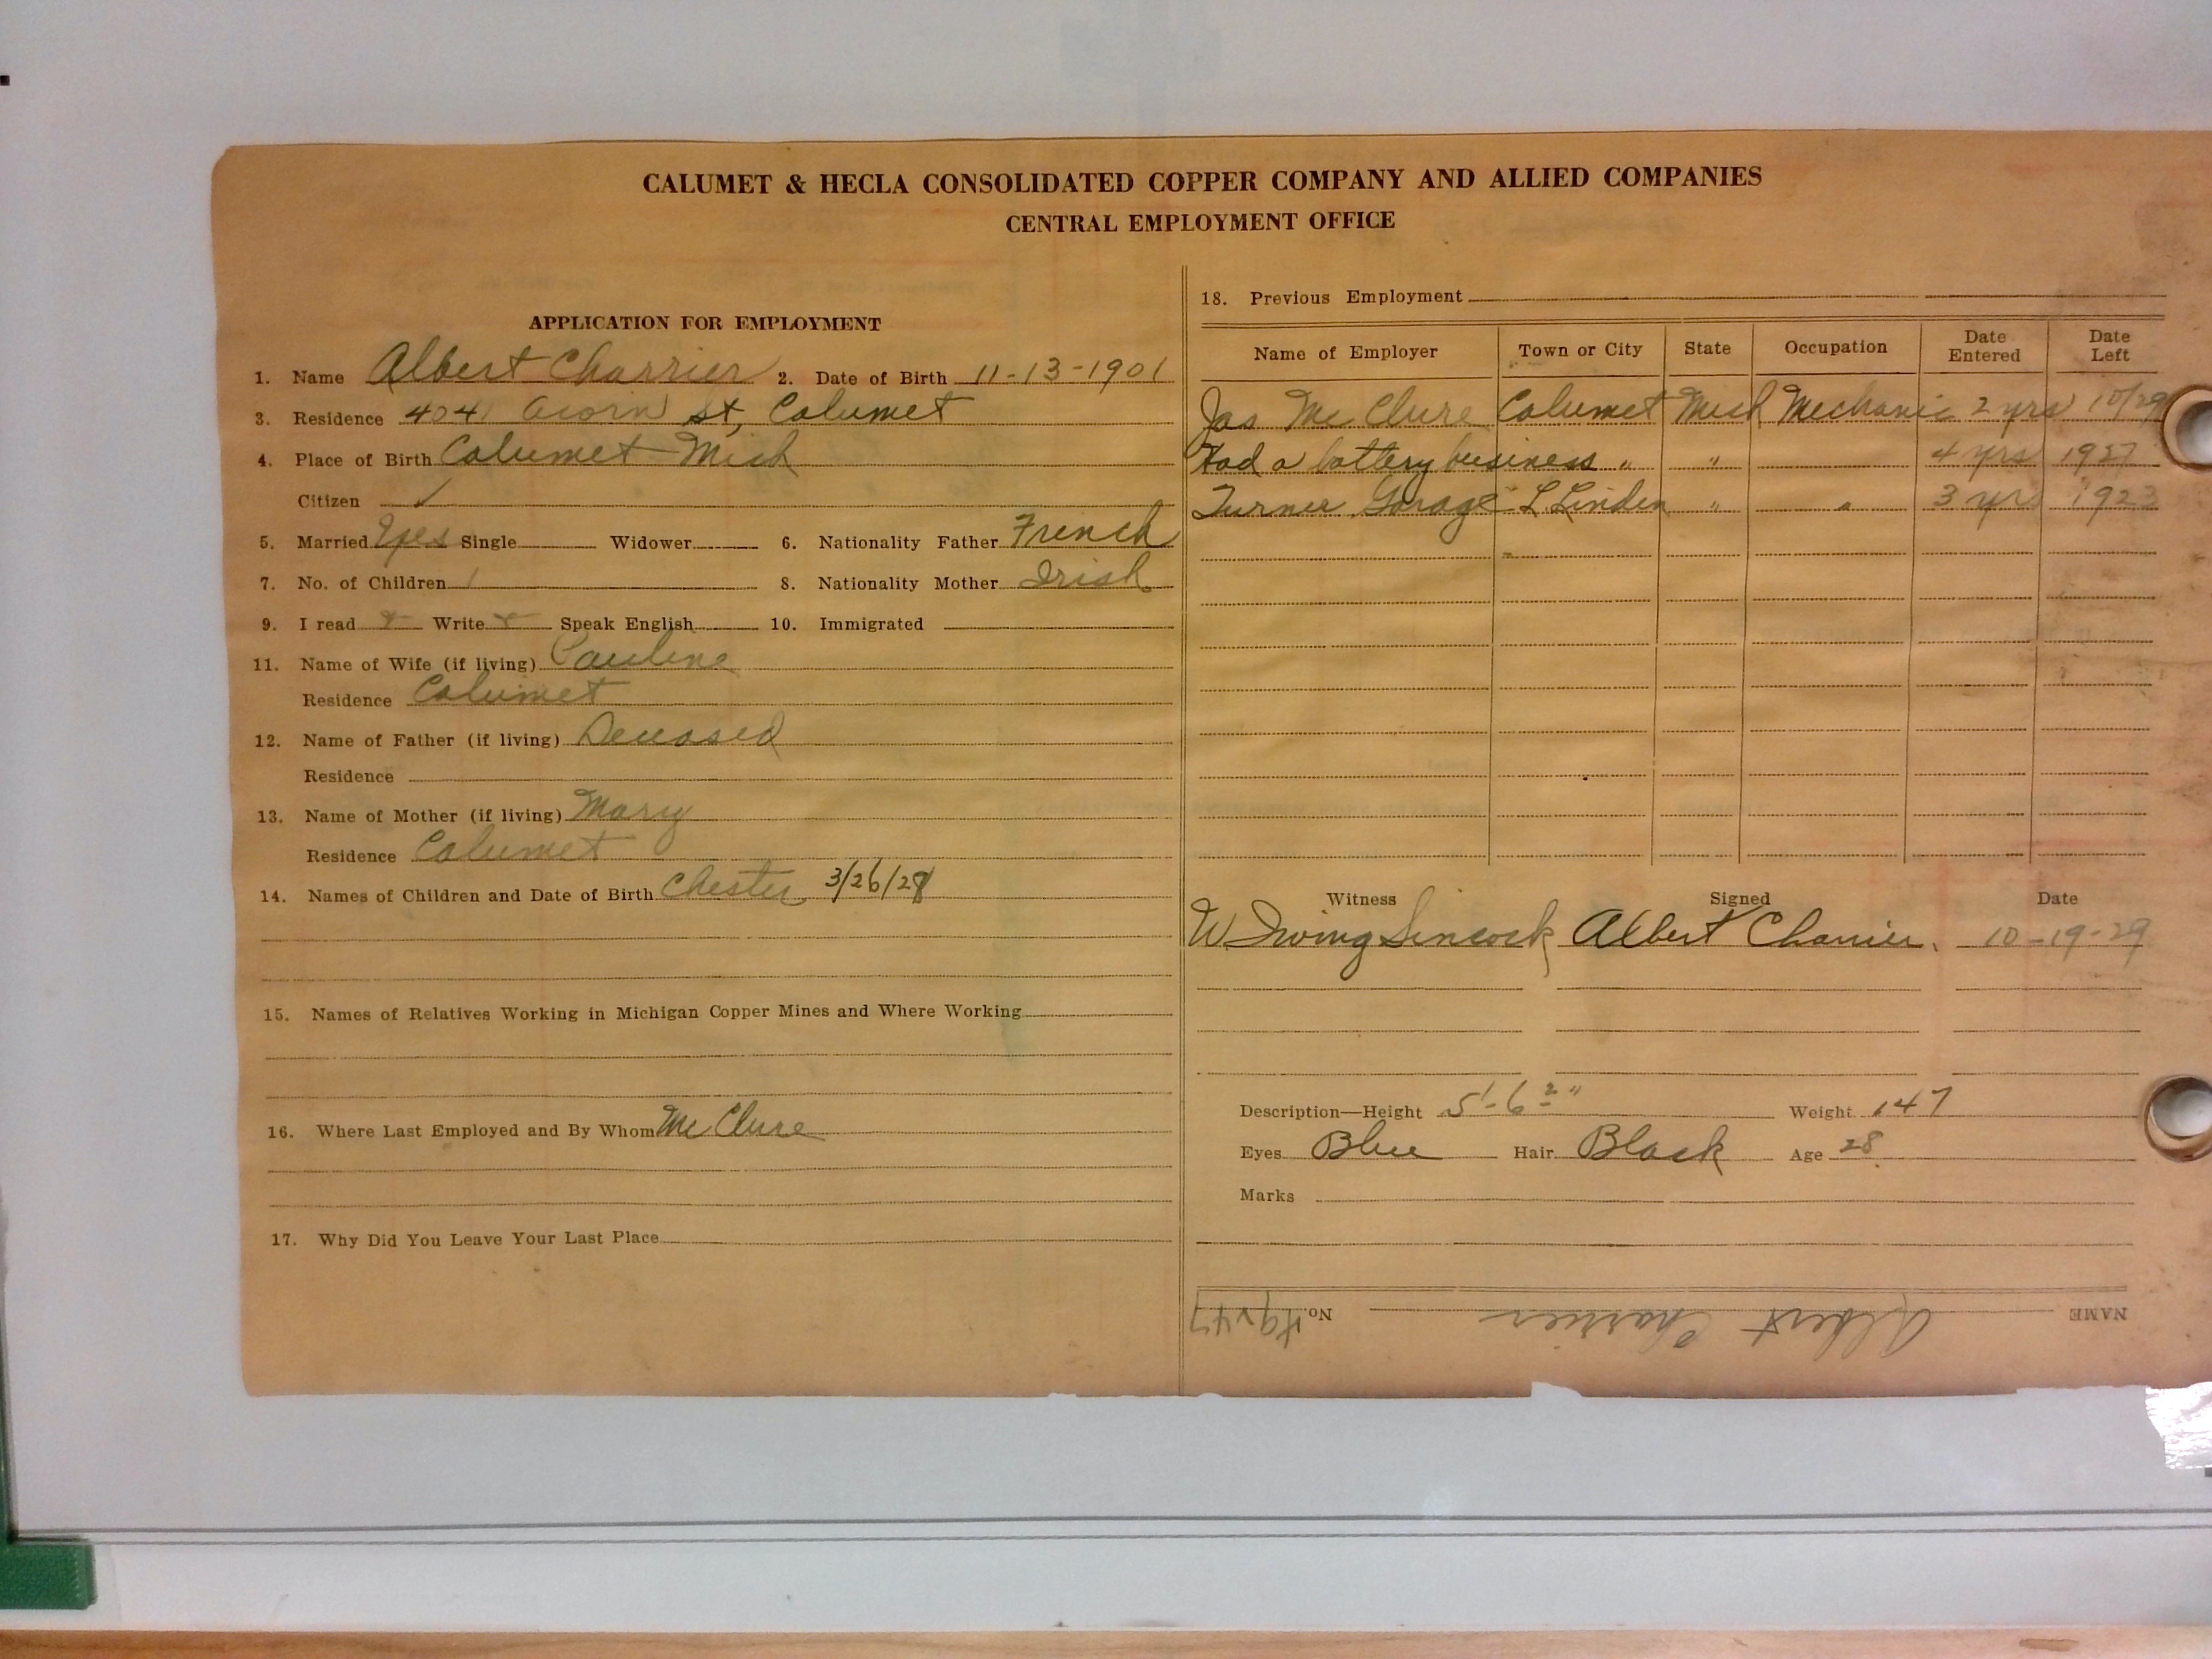 CALUMET & HECLA CONSOLIDATED COPPER COMPANY AND ALLIED COMPANIES
CENTRAL EMPLOYMENT OFFICE
APPLICATION FOR EMPLOYMENT
1. Name Albert Charrier 2. Date of Birth 11-13-1901
3. Residence 4041 Acorn St, Calumet
4. Place of Birth Calumet Mich
Citizen ✓
5. Married Yes Single Widower 6. Nationality Father French
7. No. of Children 1 8. Nationality Mother Irish
9. I read Write Speak English 10. Immigrated
11. Name of Wife (if living) Pauline
Residence Calumet
12. Name of Father (if living) Deceased
Residence
13. Name of Mother (if living) Mary
Residence Calumet
14. Names of Children and Date of Birth Chester 3/26/28
15. Names of Relatives Working in Michigan Copper Mines and Where Working
16. Where Last Employed and By Whom McClure
17. Why Did You Leave Your Last Place
18. Previous Employment
Name of Employer Town or City State Occupation Date Entered Date Left
Jas McClure Calumet Mich Mechanic 2 yrs 10/29
Had a battery business " " 4 yrs 1927
Turner Garage L. Linden " " 3 yrs 1923
Witness Signed Date
W. Irwing Sincock Albert Charrier. 10-19-29
Description—Height 5'-6 2" Weight 147
Eyes Blue Hair Black Age 28
Marks
NAME Albert Charrier No.